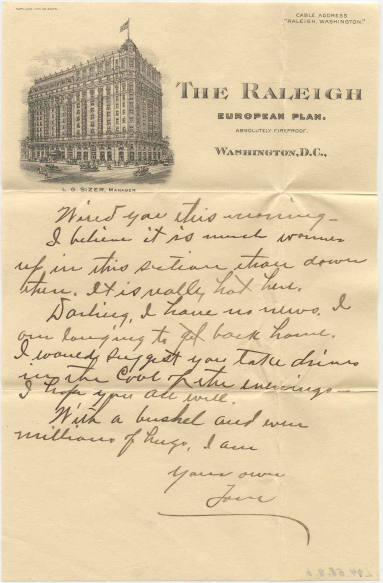 CABLE ADDRESS
"RALEIGH, WASHINGTON."
THE RALEIGH
EUROPEAN PLAN.
ABSOLUTELY FIREPROOF.
WASHINGTON, D.C.,
L. G. SIZER, MANAGER
Wired you this morning –
I believe it is much warmer
up in this section than down
there. It is really hot here.
Darling, I have no news. I
am longing to get back home.
I would suggest you take drives
in the cool of the evenings –
I hope you are well.
With a bushel and
millions of hugs, I am
Your own